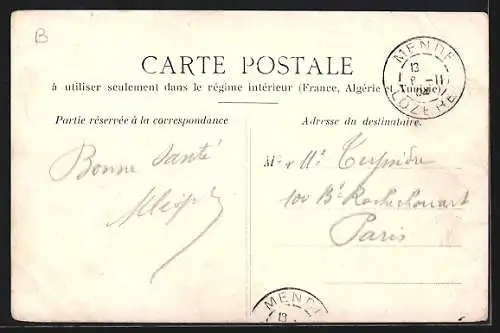 B
CARTE POSTALE
à utiliser seulement dans le régime intérieur (France, Algérie et Tunisie)
MENDE
13
8 -11
04
LOZERE
Partie réservée à la correspondance
Bonne Santé
Adresse du destinataire.
Mr & Me
100 Bd Rochechouart
Paris
MENDE
13